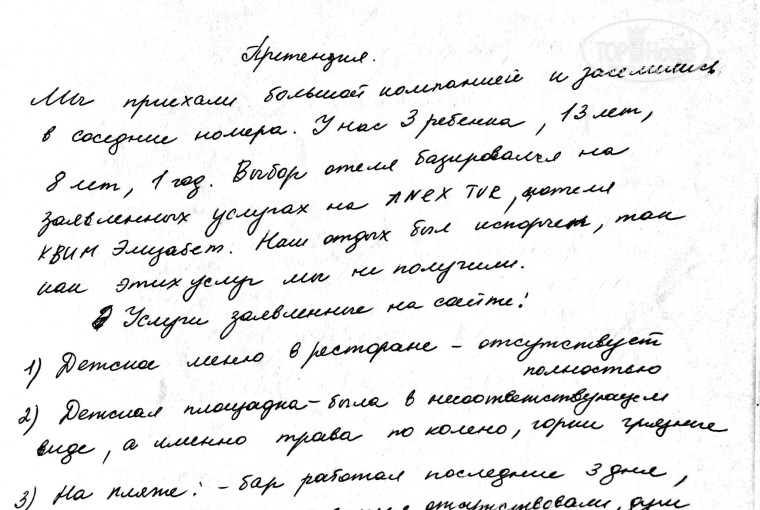 Претензия.
Мы приехали большой компанией и заселились
в соседние номера. У нас 3 ребенка, 13 лет,
8 лет, 1 год. Выбор отеля базировался на
заявленных услугах на ANEX TUR, отеля
КВИН Элизабет. Наш отдых был испорчен, так
как этих услуг мы не получили.
Услуги заявленные на сайте:
1) Детское меню в ресторане - отсутствует
полностью
2) Детская площадка - была в несоответствующем
виде, а именно трава по колено, горки грязные
3) На пляже: - бар работал последние 3 дня,
отсутствовали, душ